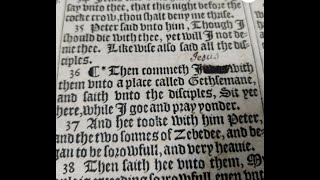 say vnto thee, that this night before the
cocke crow, thou shalt deny me thrise.
35 Peter said vnto him, Though I
should die with thee, yet will I not de-
nie thee. Likewise also said all the dis-
ciples.
Jesus
36 ¶ Then commeth with
them vnto a place called Gethsemane,
and saith vnto the disciples, Sit yee
here, while I goe and pray yonder.
37 And hee tooke with him Peter,
and the two sonnes of Zebedee, and be-
gan to be sorowfull, and very heauie.
38 Then saith hee vnto them, My
exceeding sorowfull, euen vnto